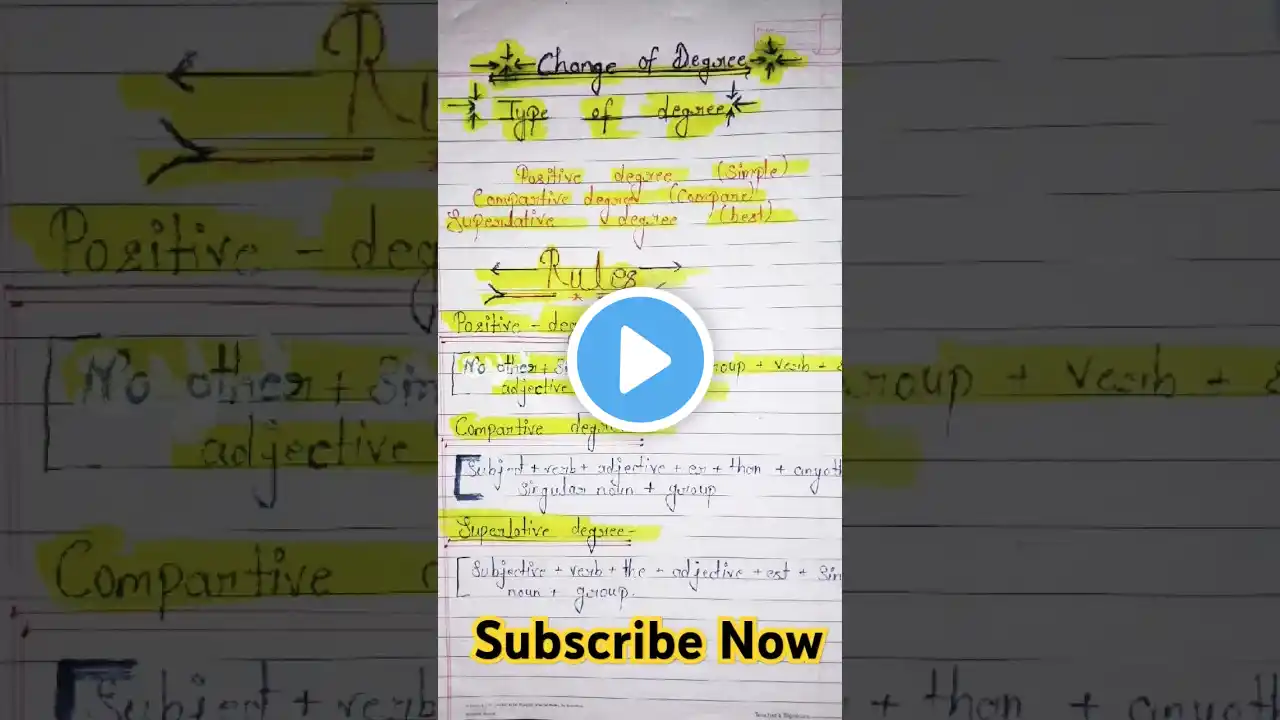 Change of Degree
Type of degree
Positive degree (Simple)
Compartive degree (Compare)
Superlative degree (best)
Rules
Positive - deg
No other + Sin roup + verb +
adjective
Compartive degr
Subject + verb + adjective + er + than + anyoth
Singular noun + group
Superlative degree-
Subjective + verb + the + adjective + est + Sin
noun + group.
Subscribe Now
Teacher's Signature